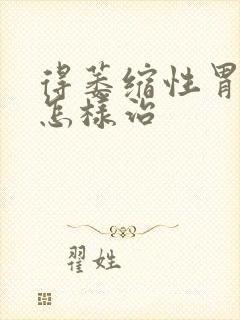 得萎缩性胃
怎样治
翟姓